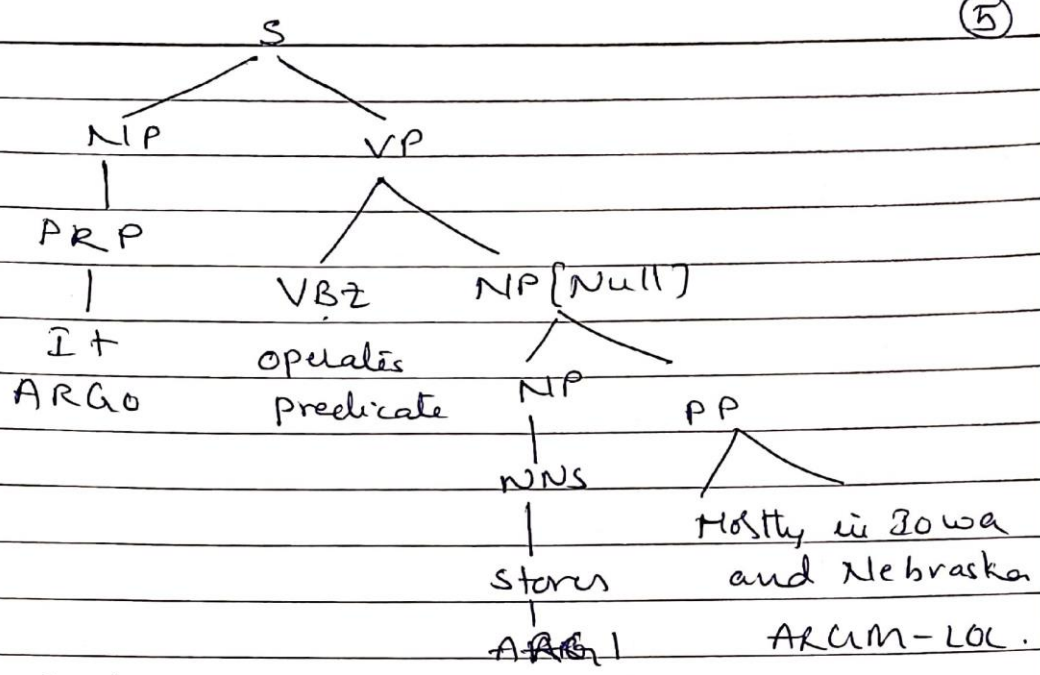 5
S
NP VP
PRP
VBZ NP [Null]
It operates NP
ARG0 predicate PP
NNS
Mostly in Iowa
stores and Nebraska
ARG1 ARGM-LOC.